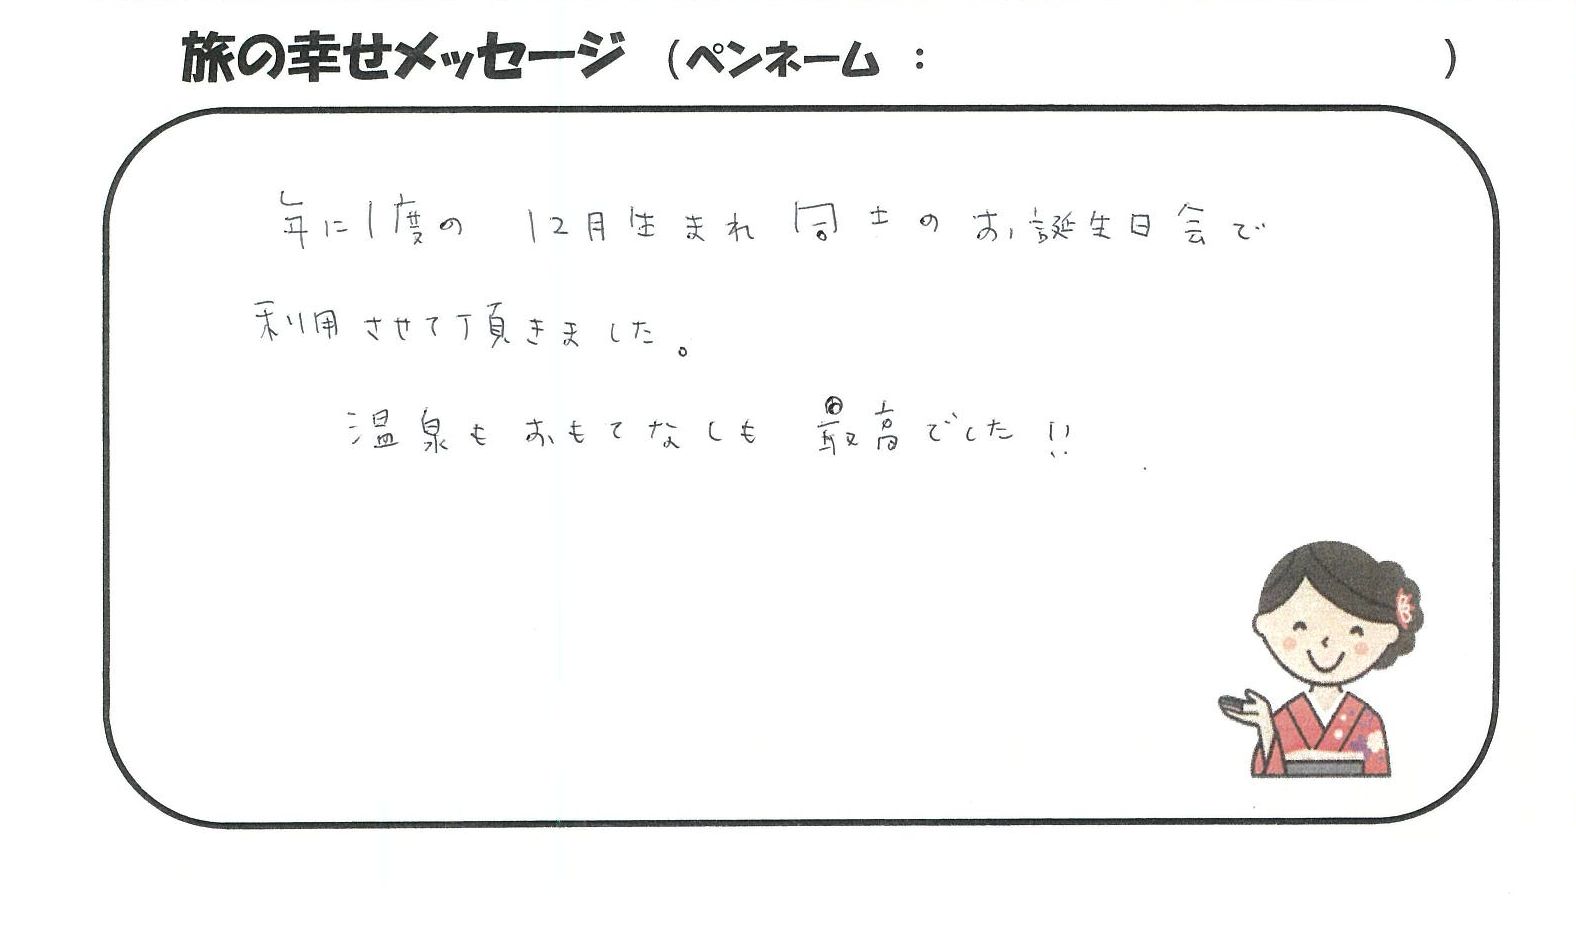 旅の幸せメッセージ (ペンネーム : )
年に1度の 12月生まれ同士のお誕生日会で
利用させて頂きました。
温泉もおもてなしも 最高でした!!